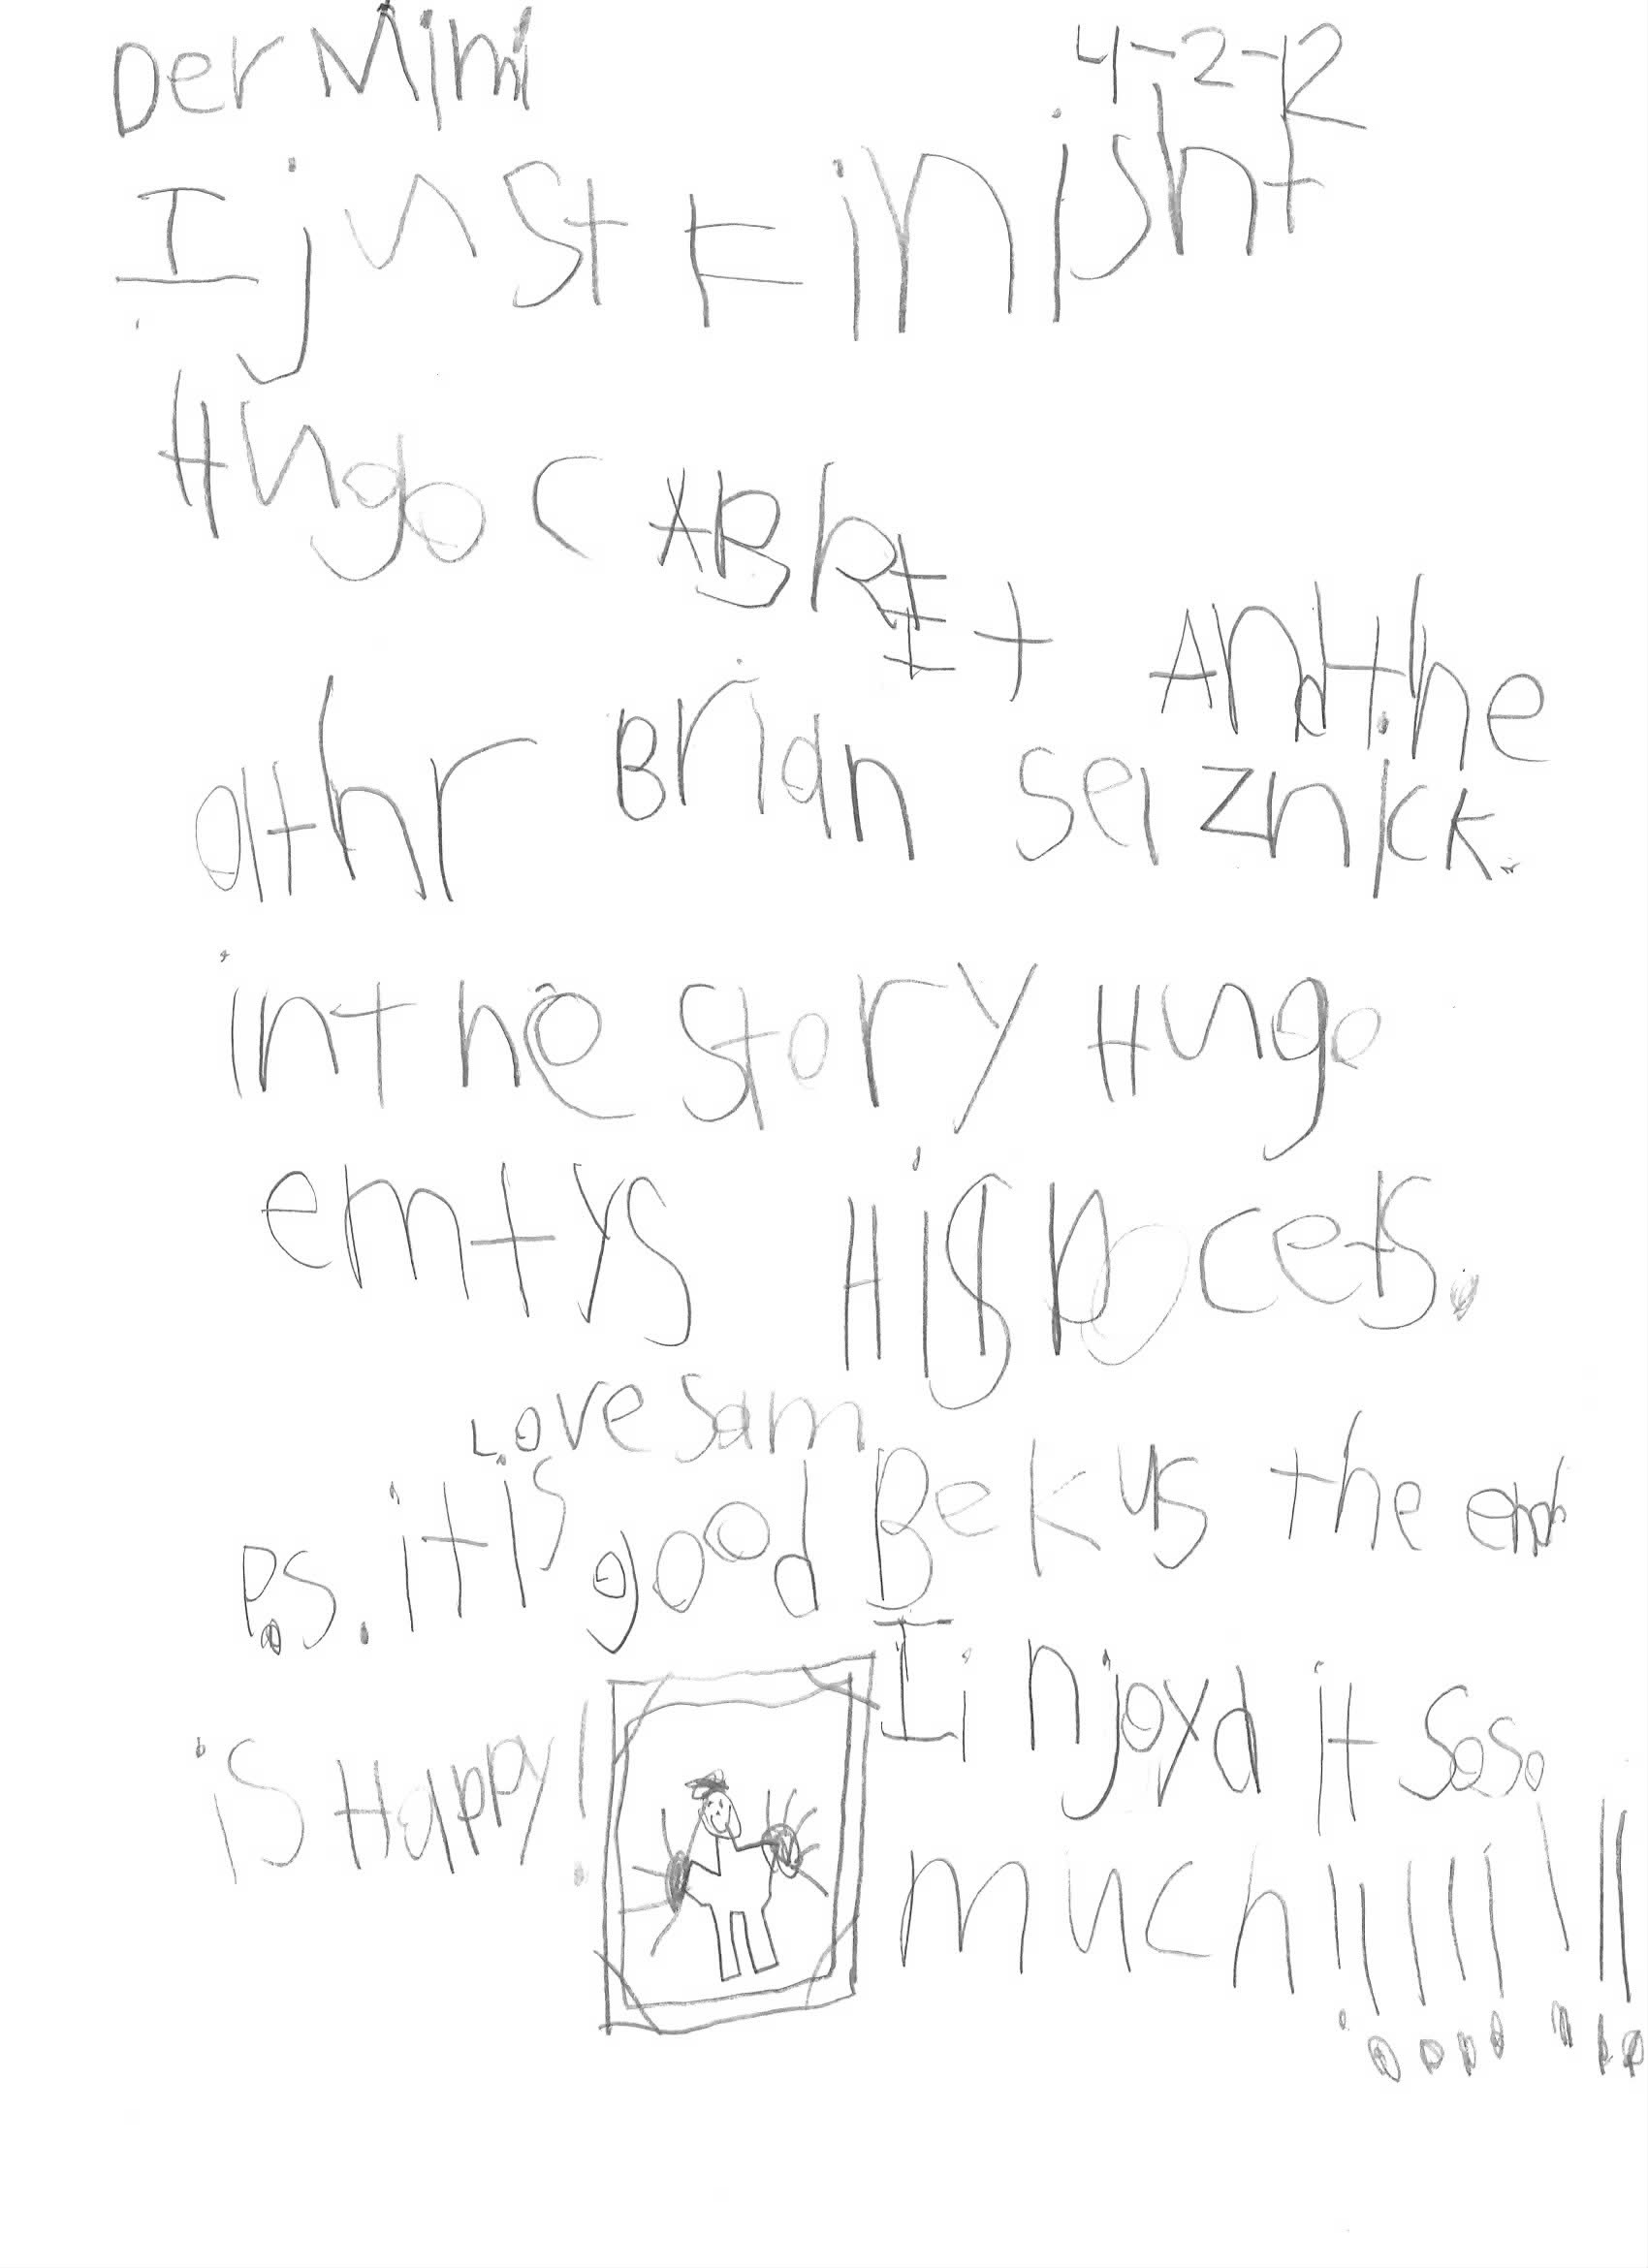 Der Mimi 4-2-12
I just Finisht
Hugo CABREt And the
athr Brian selznick.
in the story Hugo
emtys His pocets.
Love Sam
P.S. it is good Bekus the end
is Happy! I injoyd it so so
much!!!!!!!!